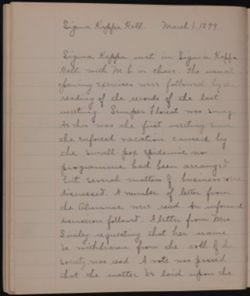 Sigma Kappa Hall March 1, 1899
Sigma Kappa met in Sigma Kappa
Hall with M. E. in chair. The usual
opening exercises were followed by the
reading of the records of the last
meeting. Semper Floreat was sung
As this was the first meeting since
the enforced vacation caused by
the small pox epidemic no
programme had been arranged
but several matters of business were
discussed. A number of letters from
the Alumnae were read. An informal
discussion followed. A letter from Mrs
requesting that her name
be withdrawn from the roll of the
society was read. A vote was passed
that the matter be laid upon the